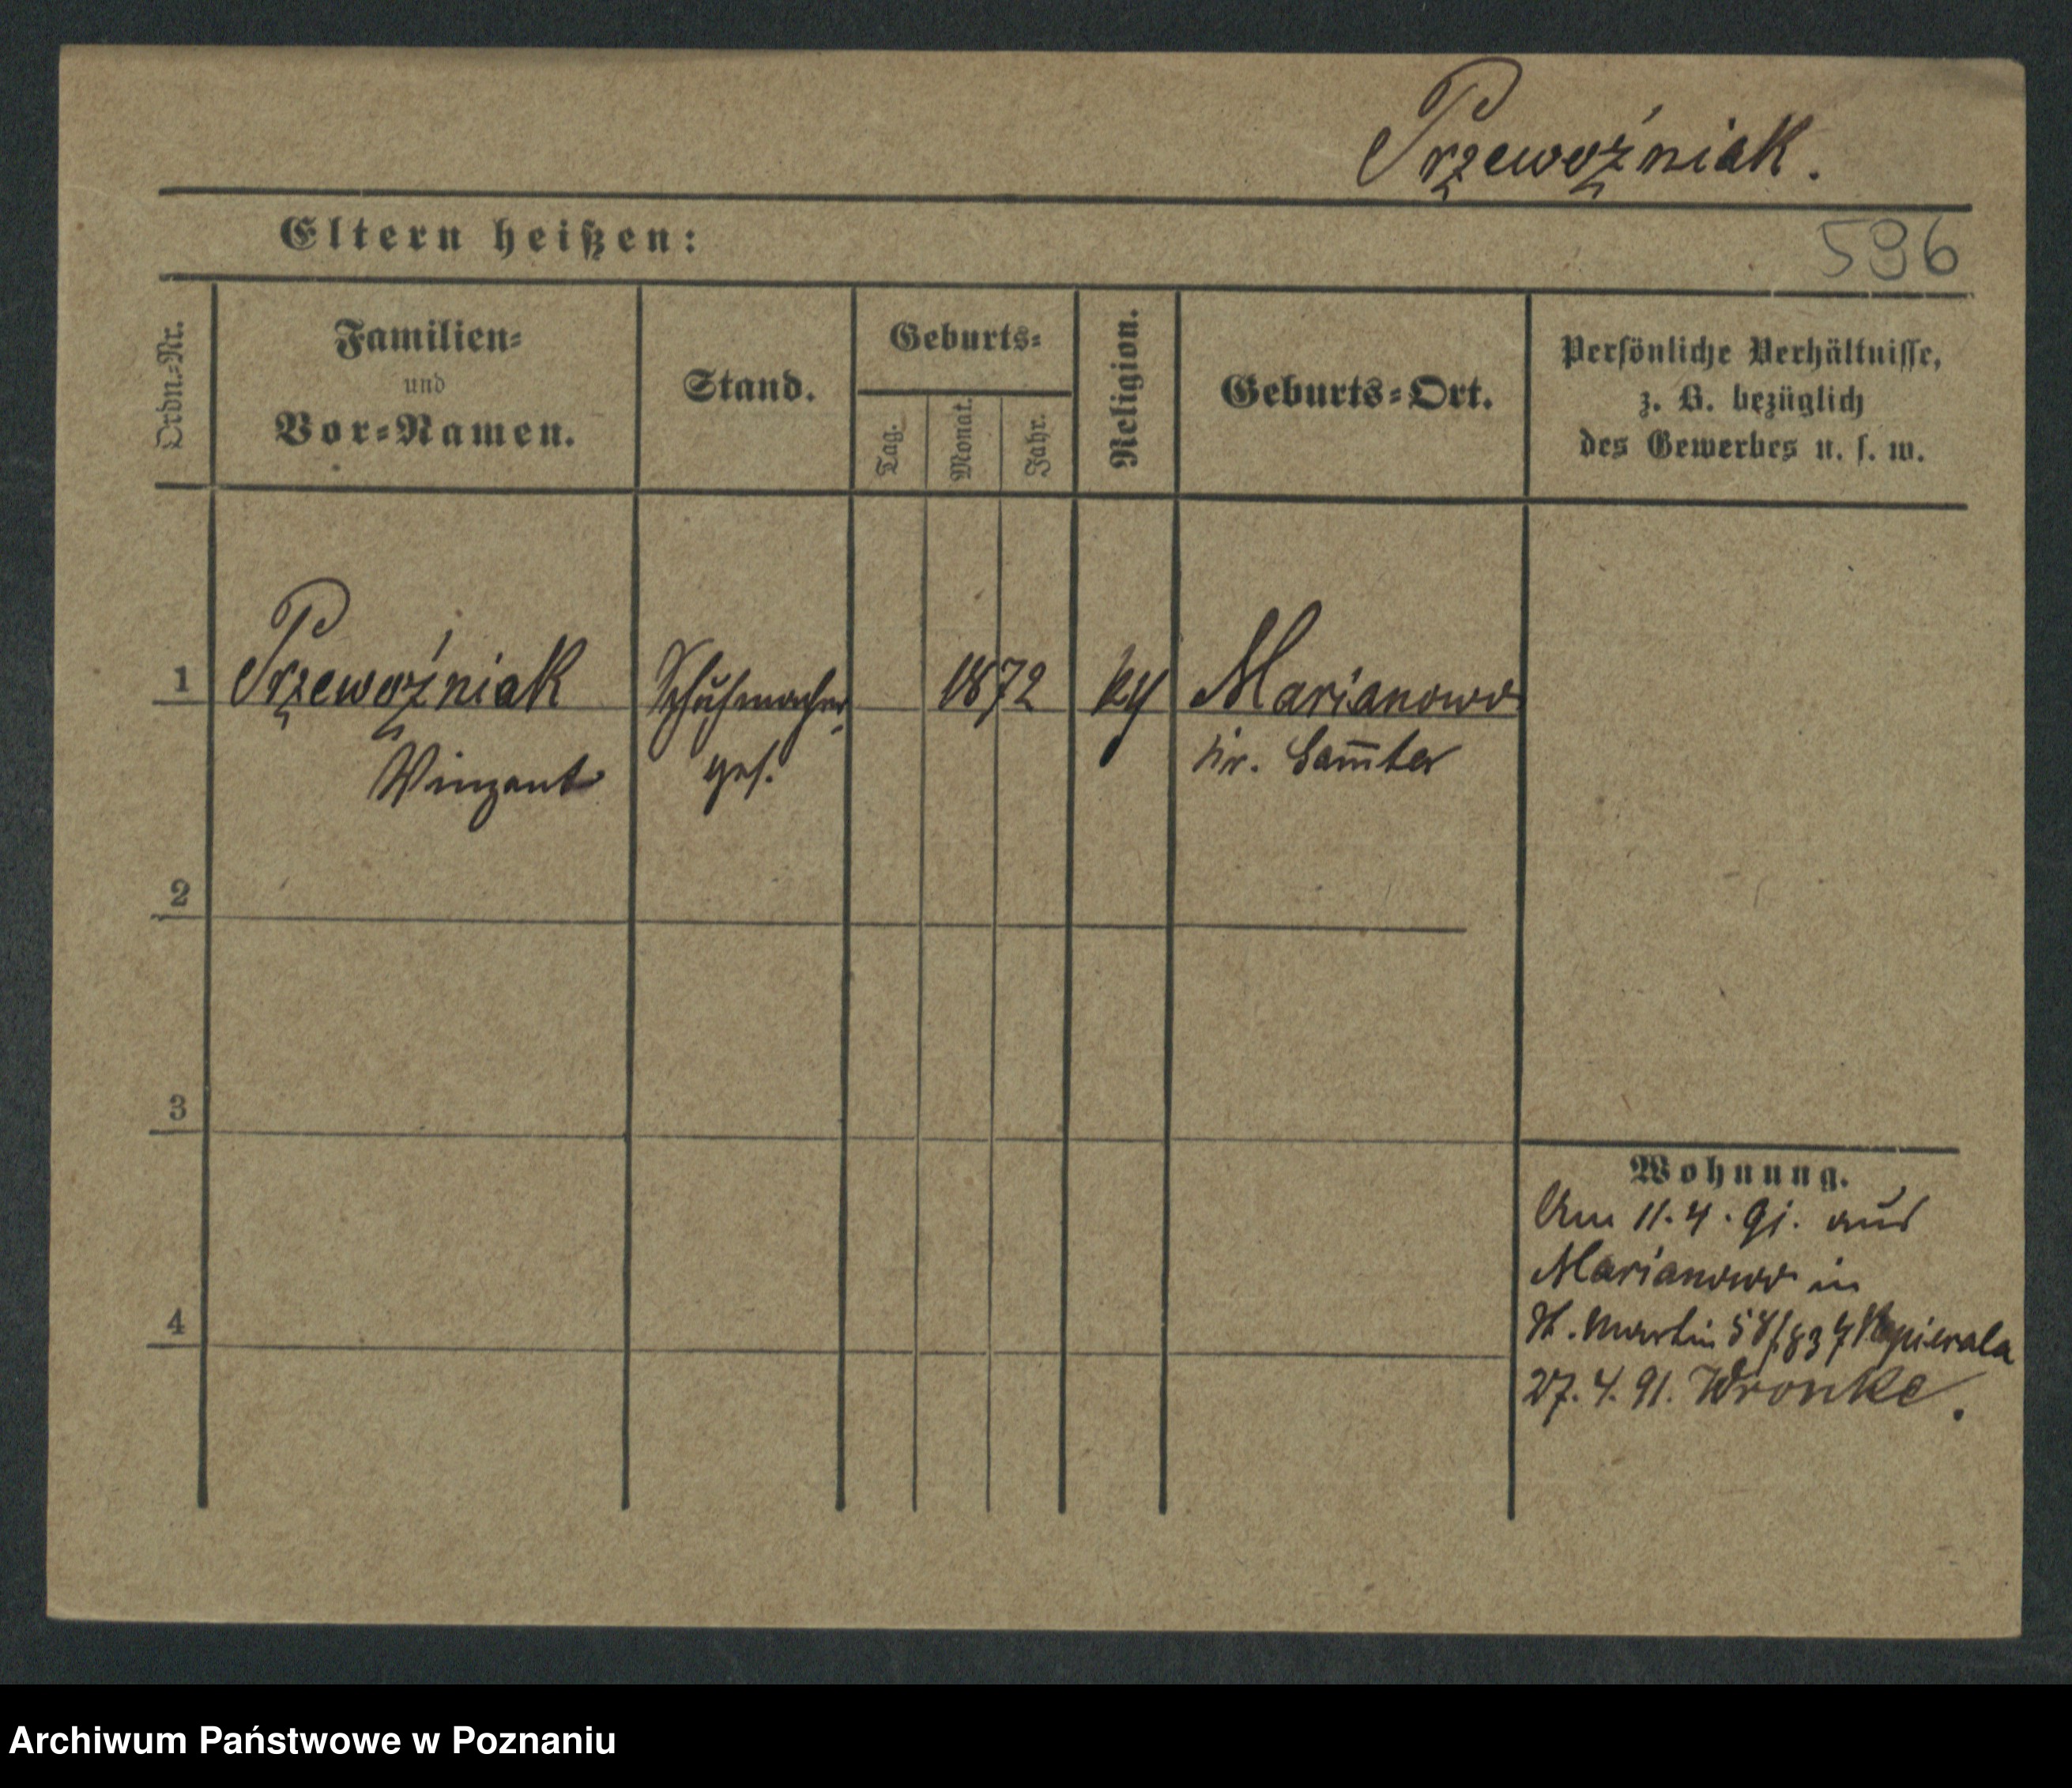 Przewoźniak.
Eltern heißen:
596
Ordn.-Nr.
Familien-
und
Vor-Namen.
Stand.
Geburts-
Tag.
Monat.
Jahr.
Religion.
Geburts-Ort.
Persönliche Verhältnisse,
z. B. bezüglich
des Gewerbes u. s. w.
1 Przewoźniak Schuhmacher 1872 Marianowo
Vinzent ges. Kr. Samter
2
3
4
Wohnung.
Am 11.4.91. aus
Marianowo in
St. Martin
27.4.91. Wronke.
Archiwum Państwowe w Poznaniu